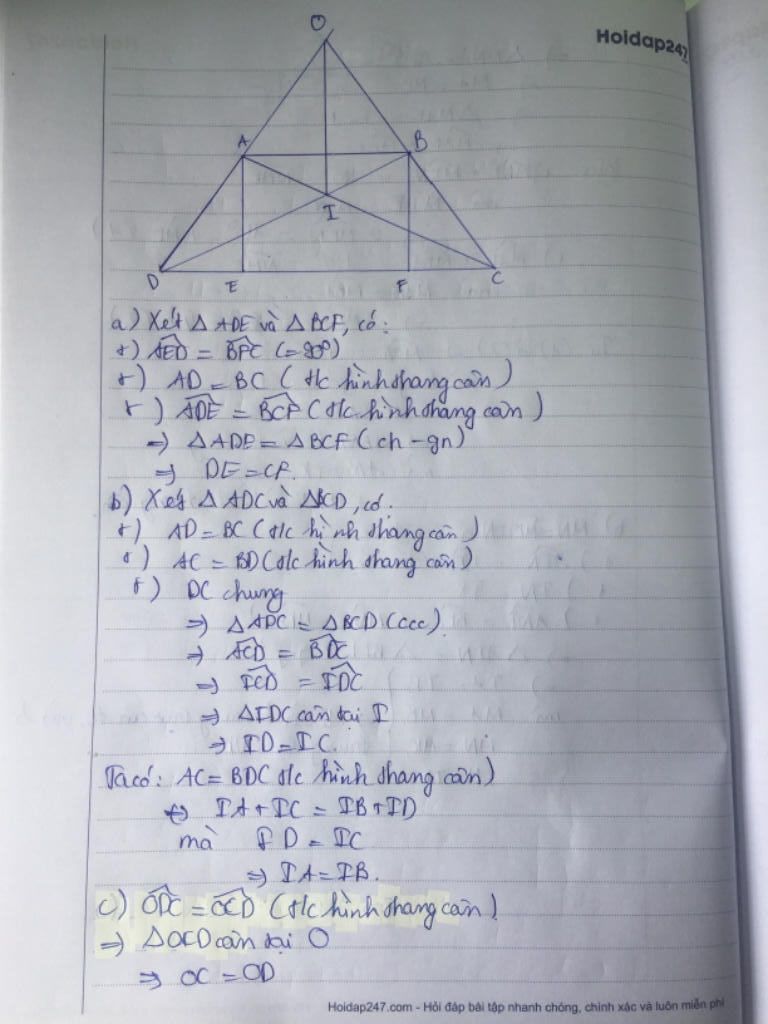 Hoidap247
O
A
B
I
D
E
F
C
a) Xét △ ADE và △ BCF, có:
+) AED = BFC (= 90°)
+) AD = BC ( t/c hình thang cân )
+) ADE = BCF ( t/c hình thang cân )
=> △ ADE = △ BCF ( ch - gn )
=> DE = CF.
b) Xét △ ADC và △BCD, có.
+) AD = BC ( t/c hình thang cân )
+) AC = BD ( t/c hình thang cân )
+) DC chung
=> △ ADC = △ BCD (ccc)
=> ACD = BDC
=> ICD = IDC
=> △IDC cân tại I
=> ID = IC.
Ta có: AC = BDC t/c hình thang cân )
<=> IA + IC = IB + ID
mà ID = IC
=> IA = IB.
c) ODC = OCD ( t/c hình thang cân )
=> △OCD cân tại O
=> OC = OD
Hoidap247.com - Hỏi đáp bài tập nhanh chóng, chính xác và luôn miễn phí